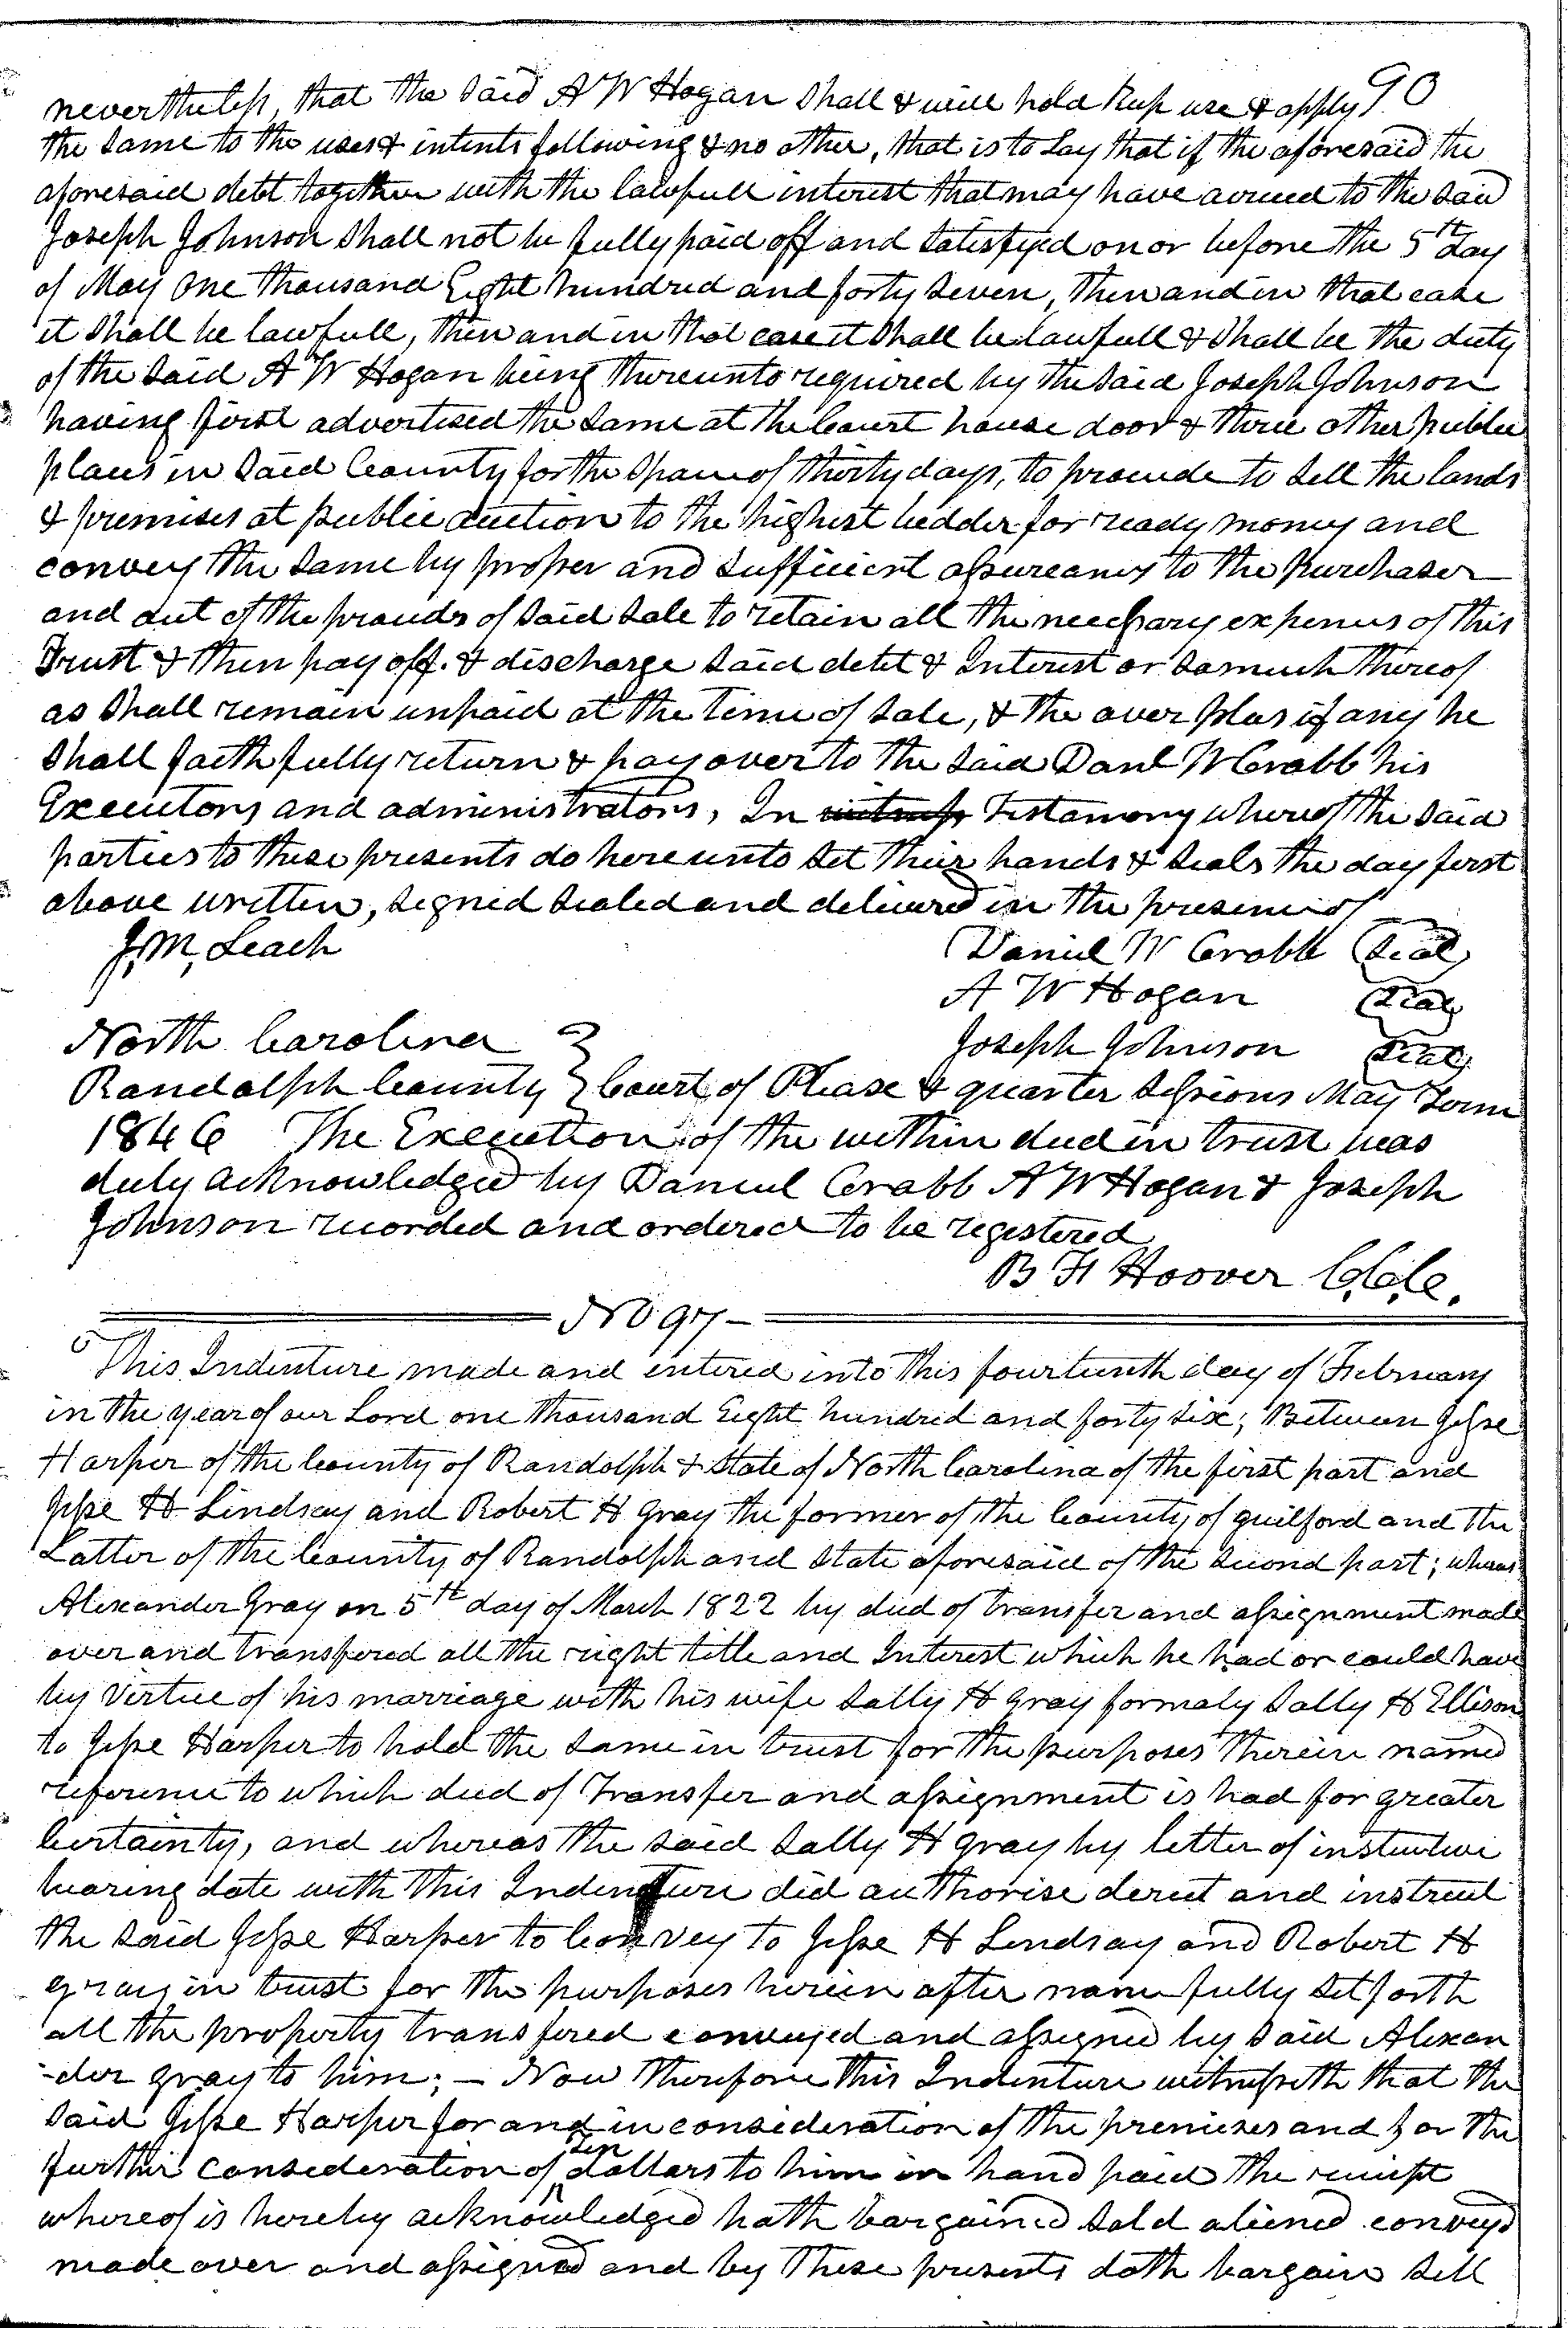 90
nevertheless, that the said A W Hogan Shall & will hold keep use & apply
the same to the uses & intents following & no other, that is to Say that if the aforesaid the
aforesaid debt together with the lawfull interest that may have acrued to the said
Joseph Johnson Shall not be fully paid off and satisfyed on or before the 5th day
of May One thousand Eight hundred and forty seven, then and in that case
it Shall be lawfull, then and in that case it Shall be lawfull & Shall be the duty
of the said A W Hogan being thereunto required by the said Joseph Johnson
having first advertised the same at the Court house door & three other public
places in said County for the space of thirty days, to proceede to sell the lands
& premises at public auction to the highest bedder for ready money and
convey the same by proper and sufficient assureances to the purchaser
and out of the proceeds of said sale to retain all the necessary expences of this
Trust & then pay off. & discharge said debt & Interest or so much thereof
as Shall remain unpaid at the time of sale, & the over plus if any he
Shall faithfully return & pay over to the said Danl W Crabb his
Executors and administrators, In witness Testamony whereof the said
parties to these presents do here unto set their hands & seals the day first
above written, Signed sealed and delivered in the presence of
J. M. Leach Daniel W Crabb (Seal)
A W Hogan (Seal)
Joseph Johnson (Seal)
North Carolina
Randolph County } Court of Please & quarter Sessions May Term
1846 The Execution of the within deed in trust was
duly acknowledged by Daniel Crabb A W Hogan & Joseph
Johnson recorded and ordered to be registered
B F Hoover C.C.C.
No 97
This Indenture made and entered into this fourteenth day of February
in the year of our Lord one thousand Eight hundred and forty six; Between Jesse
Harper of the County of Randolph & State of North Carolina of the first part and
Jesse H Lindsay and Robert H Gray the former of the County of guilford and the
Latter of the County of Randolph and State aforesaid of the second part; whereas
Alexander Gray on 5th day of March 1822 by deed of transfer and assignment made
over and transfered all the right title and Interest which he had or could have
by virtue of his marriage with his wife Sally H Gray formaly Sally H Ellison
to Jesse Harper to hold the same in trust for the purposes therein named
reference to which deed of Transfer and assignment is had for greater
Certainty, and whereas the said Sally H gray by letter of
bearing date with this Indenture did authorise derect and instruct
the said Jesse Harper to Convey to Jesse H Lindsay and Robert H
gray in trust for the purposes herein after name fully set forth
all the property transfered conveyed and assigned by said Alexan
-der gray to him; — Now Therefore this Indenture witnesseth that the
said Jesse Harper for and in consideration of the premises and for the
further consideration of ten dollars to him in hand paid the receipt
whereof is hereby acknowledged hath bargained sold aliened conveyd
made over and assigned and by these presents doth bargain sell